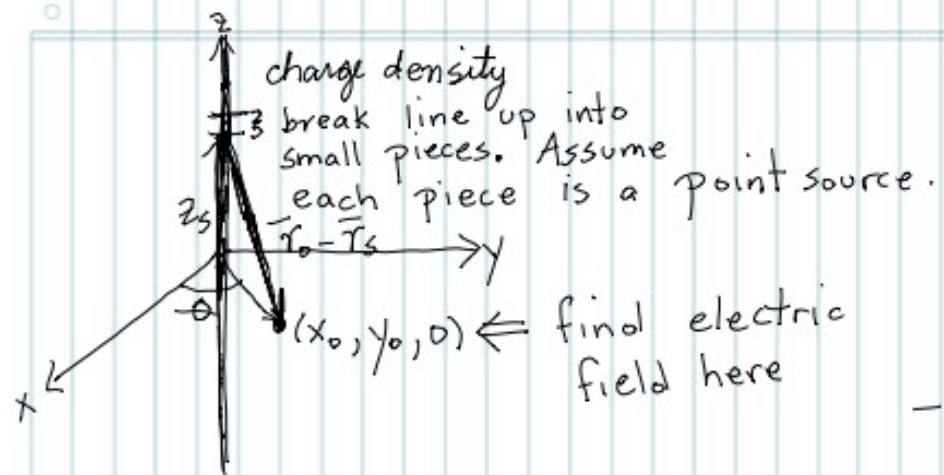 z
charge density
break line up into
small pieces. Assume
each piece is a point source.
z_s
r̄_0 - r̄_s
y
θ
(x_0, y_0, 0) ⇐ find electric
field here
x